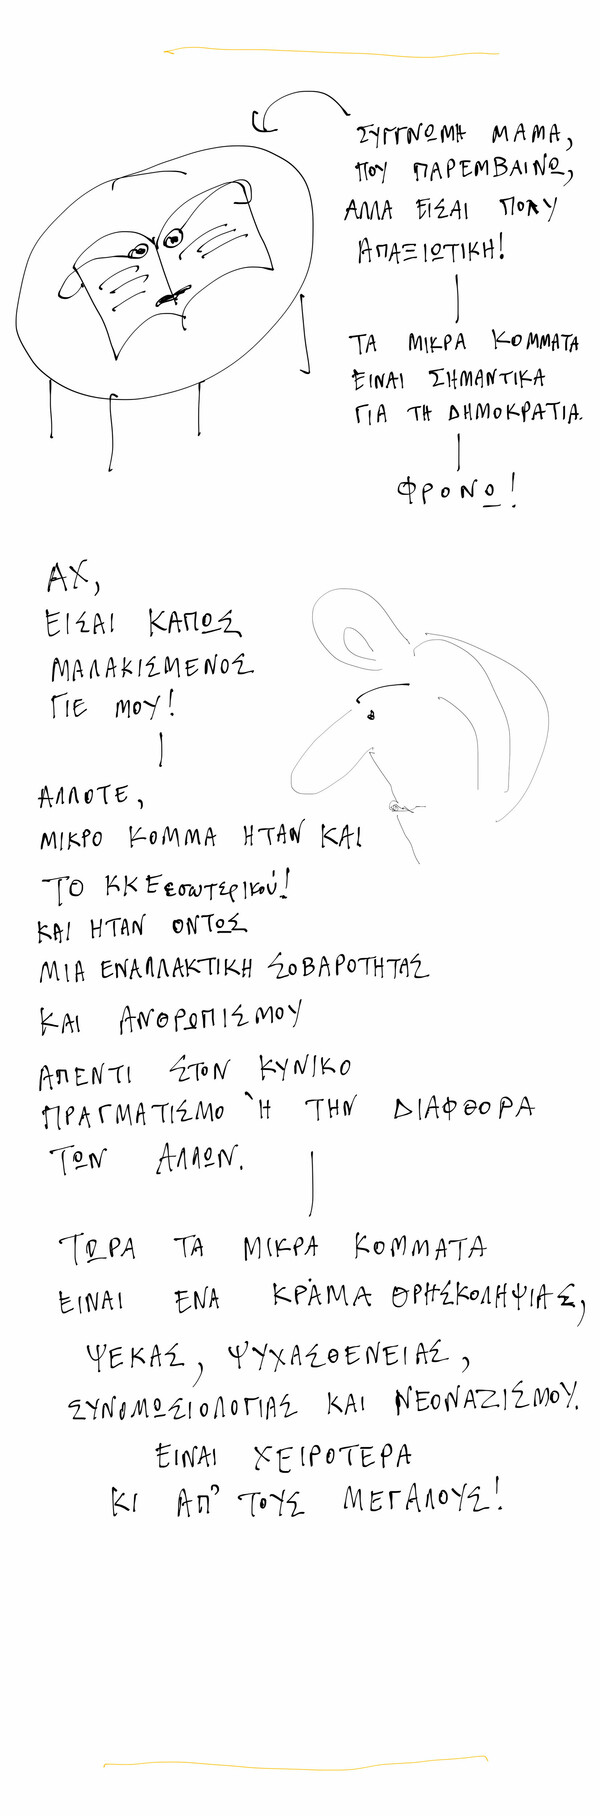 ΣΥΓΓΝΩΜΗ ΜΑΜΑ,
ΠΟΥ ΠΑΡΕΜΒΑΙΝΩ,
ΑΛΛΑ ΕΙΣΑΙ ΠΟΛΥ
ΑΠΑΞΙΩΤΙΚΗ!
ΤΑ ΜΙΚΡΑ ΚΟΜΜΑΤΑ
ΕΙΝΑΙ ΣΗΜΑΝΤΙΚΑ
ΓΙΑ ΤΗ ΔΗΜΟΚΡΑΤΙΑ.
ΦΡΟΝΩ!
ΑΧ,
ΕΙΣΑΙ ΚΑΠΩΣ
ΜΑΛΑΚΙΣΜΕΝΟΣ
ΓΙΕ ΜΟΥ!
ΑΛΛΟΤΕ,
ΜΙΚΡΟ ΚΟΜΜΑ ΗΤΑΝ ΚΑΙ
ΤΟ ΚΚΕεσωτερικού!
ΚΑΙ ΗΤΑΝ ΟΝΤΩΣ
ΜΙΑ ΕΝΑΛΛΑΚΤΙΚΗ ΣΟΒΑΡΟΤΗΤΑΣ
ΚΑΙ ΑΝΘΡΩΠΙΣΜΟΥ
ΑΠΕΝΤΙ ΣΤΟΝ ΚΥΝΙΚΟ
ΠΡΑΓΜΑΤΙΣΜΟ Ή ΤΗΝ ΔΙΑΦΘΟΡΑ
ΤΩΝ ΑΛΛΩΝ.
ΤΩΡΑ ΤΑ ΜΙΚΡΑ ΚΟΜΜΑΤΑ
ΕΙΝΑΙ ΕΝΑ ΚΡΑΜΑ ΘΡΗΣΚΟΛΗΨΙΑΣ,
ΨΕΚΑΣ, ΨΥΧΑΣΘΕΝΕΙΑΣ,
ΣΥΝΟΜΩΣΙΟΛΟΓΙΑΣ ΚΑΙ ΝΕΟΝΑΖΙΣΜΟΥ.
ΕΙΝΑΙ ΧΕΙΡΟΤΕΡΑ
ΚΙ ΑΠ' ΤΟΥΣ ΜΕΓΑΛΟΥΣ!